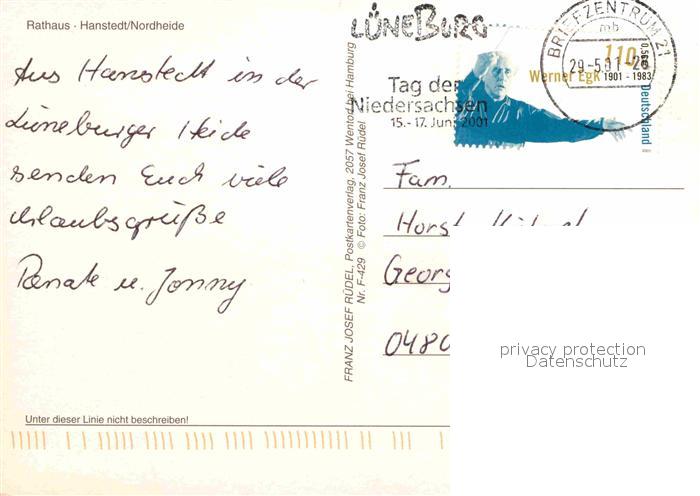 Rathaus · Hanstedt/Nordheide
Aus Hanstedt in der
Lüneburger Heide
senden Euch viele
Urlaubsgrüße
Renate u. Jonny
Unter dieser Linie nicht beschreiben!
FRANZ JOSEF RÜDEL, Postkartenverlag, 2057 Wentorf bei Hamburg
Nr. F-429 © Foto: Franz Josef Rüdel
LÜNEBURG
Tag der
Niedersachsen
15.-17. Juni 2001
BRIEFZENTRUM 21
mb
29-5.01-20
110
Werner Egk 1901 - 1983
Deutschland
Fam.
Horst
Georg
0480
privacy protection
Datenschutz